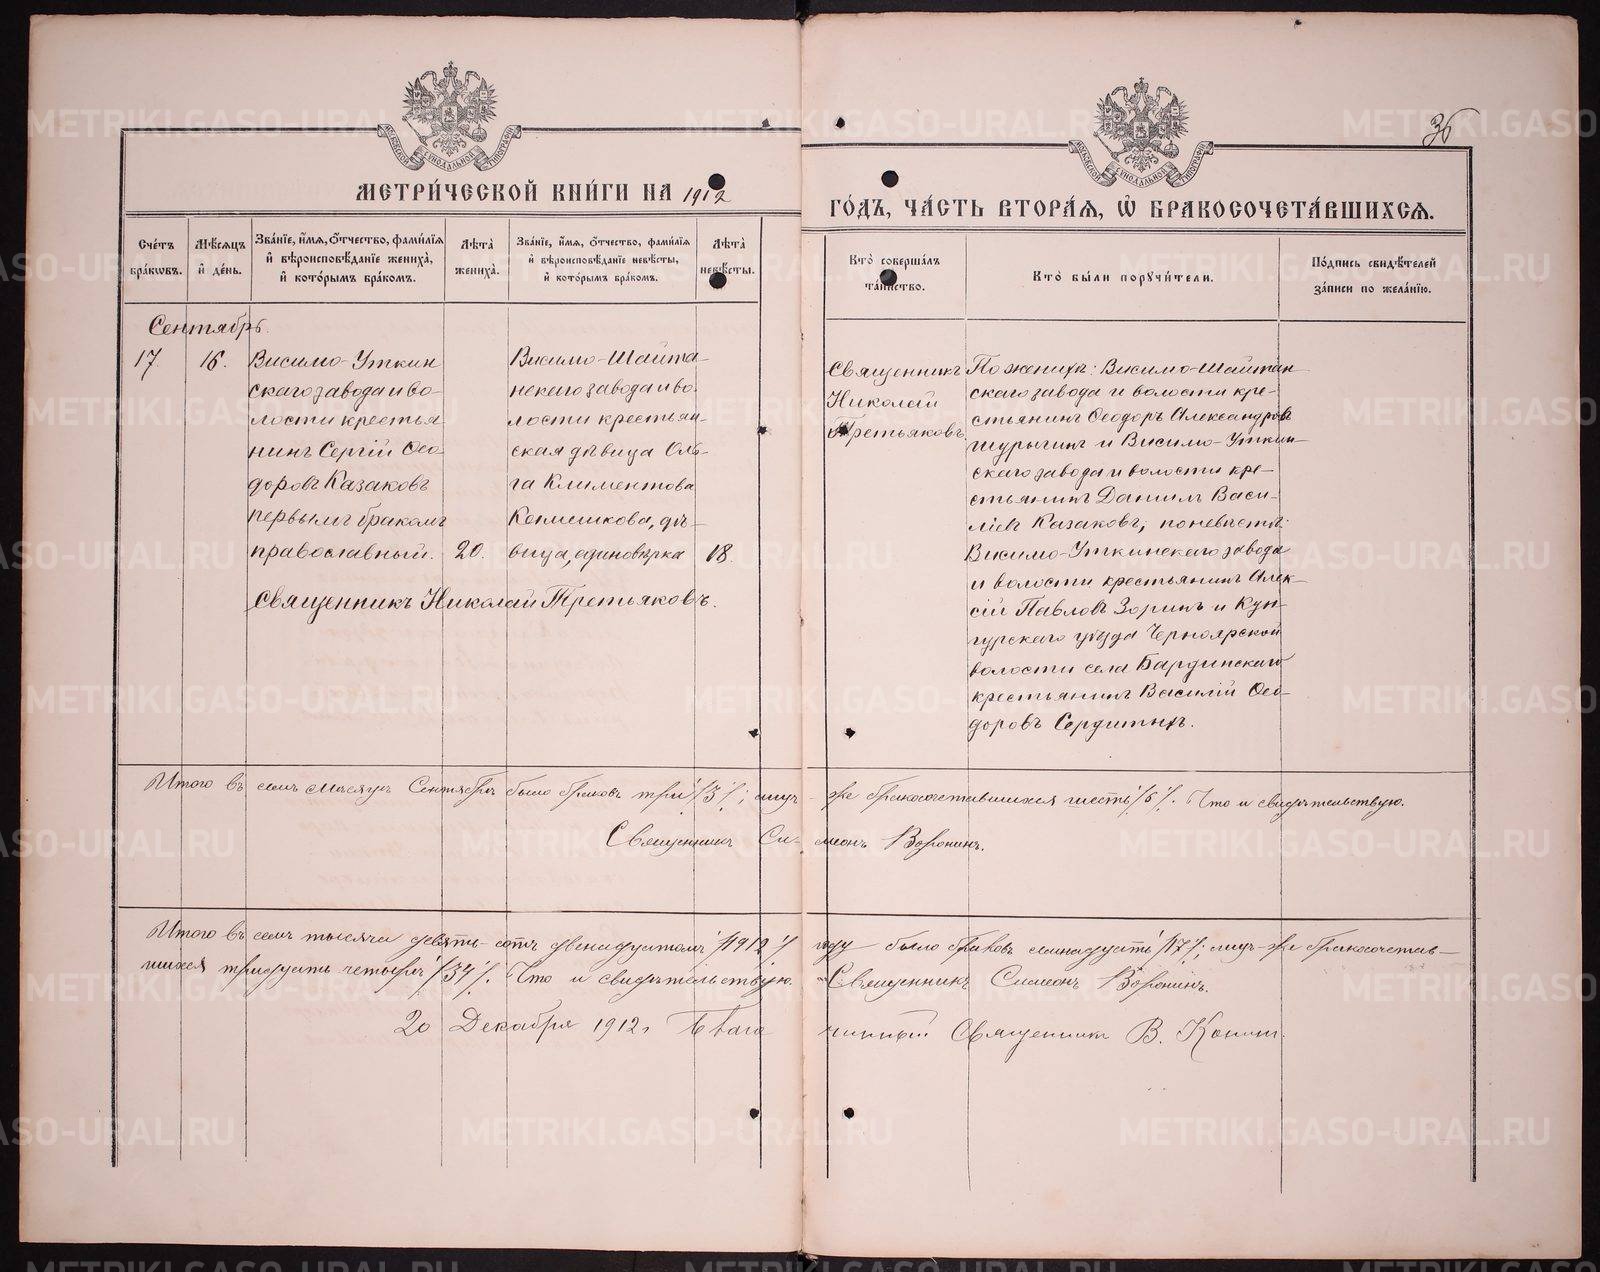 36
МОСКОВСКОЙ СѴНОДАЛЬНОЙ ТИПОГРАФІИ
МОСКОВСКОЙ СѴНОДАЛЬНОЙ ТИПОГРАФІИ
МЕТРИ́ЧЕСКОЙ КНИ́ГИ НА 1912
ГО́ДЪ, ЧА́СТЬ ВТОРА́Я, Ѡ҆ БРАКОСОЧЕТА́ВШИХСЯ.
Сче́тъ
бра́кѡвъ.
Мѣ́сяцъ
и҆ де́нь.
Зва́нїе, и҆́мя, ѻ҆́тчество, фами́лїя
и҆ вѣроисповѣ́данїе жениха̀,
и҆ кото́рымъ бра́комъ.
Лѣ́та
жениха̀.
Зва́нїе, и҆́мя, ѻ҆́тчество, фами́лїя
и҆ вѣроисповѣ́данїе невѣ́сты,
и҆ кото́рымъ бра́комъ.
Лѣ́та
невѣ́сты.
Кто̀ соверша́лъ
та́инство.
Кто̀ бы́ли порꙋчи́тели.
По́дпись свидѣ́телей
за́писи по жела́нїю.
Сентябрь.
17.
16.
Висимо-Уткин
скаго завода и во-
лости крестья
нинъ Сергій Ѳео
доровъ Казаковъ
первымъ бракомъ
православный.
20.
Висимо-Шайта-
нскаго завода и во-
лости крестьян-
ская дѣвица Оль-
га Климентова
дѣ-
вица, единовѣрка
18.
Священникъ Николай Третьяковъ.
Священникъ
Николай
Третьяковъ
По женихѣ: Висимо-Шайтан
скаго завода и волости кре-
стьянинъ Ѳеодоръ Александровъ
Шурыгинъ и Висимо-Уткин-
скаго завода и волости кре-
стьянинъ Даніилъ Васи-
ліевъ Казаковъ; по невѣстѣ:
Висимо-Уткинскаго завода
и волости крестьянинъ Алек-
сій Павловъ Зоринъ и Кун-
гурскаго уѣзда Черноярской
волости села Бардинскаго
крестьянинъ Василій Ѳео-
доровъ Сердитыхъ.
Итого въ семъ мѣсяцѣ Сентябрѣ было браковъ три /3/; лицъ-же бракосочетавшихся шесть /6/. Что и свидѣтельствую.
Священникъ Симеонъ Воронинъ.
Итого въ семъ тысяча девять-сотъ двенадцатомъ /1912/ году было браковъ семнадцать /17/; лицъ-же бракосочетав-
шихся тридцать четыре /34/. Что и свидѣтельствую. Священникъ Симеонъ Воронинъ.
20 Декабря 1912 г. Благочинный Священникъ В.
METRIKI.GASO-URAL.RU